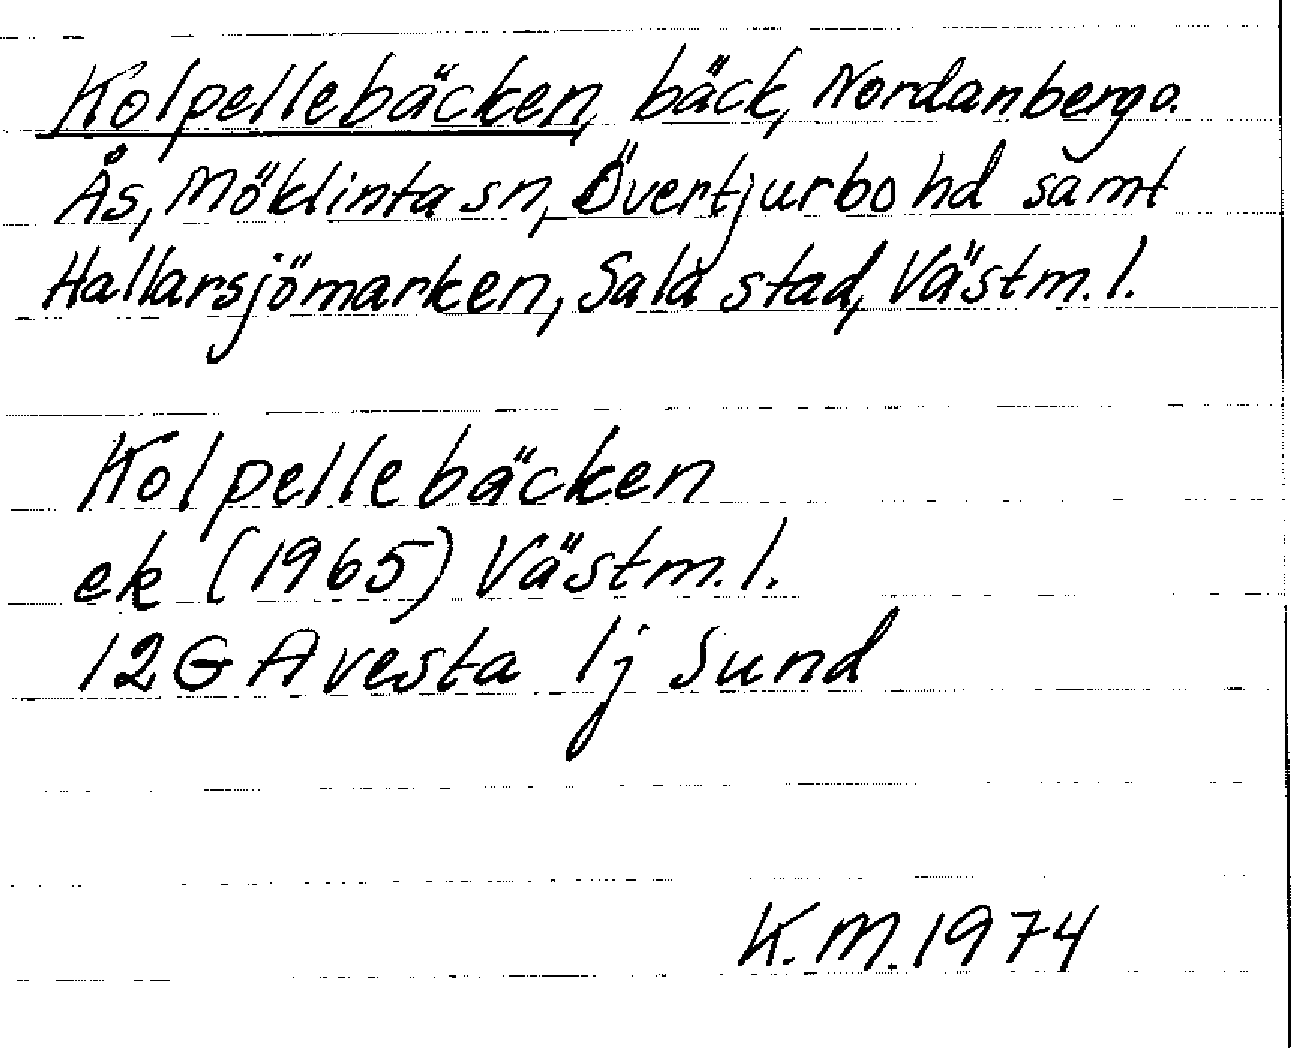 Kolpellebäcken, bäck, Nordanberg o.
Ås, Möklinta sn, Övertjurbo hd samt
Hallarsjömarken, Sala stad, Västm. l.
Kolpellebäcken
ek (1965) Västm. l.
12G Avesta 1j Sund
K. M. 1974